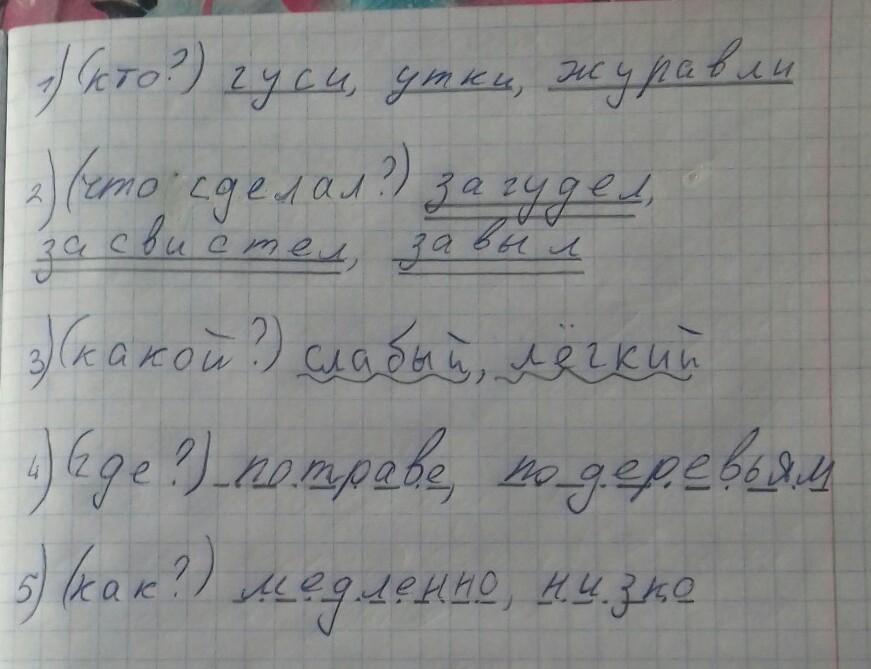 1) (кто?) гуси, утки, журавли
2) (что сделал?) загудел,
засвистел, завыл
3) (какой?) слабый, лёгкий
4) (где?) по траве, по деревьям
5) (как?) медленно, низко